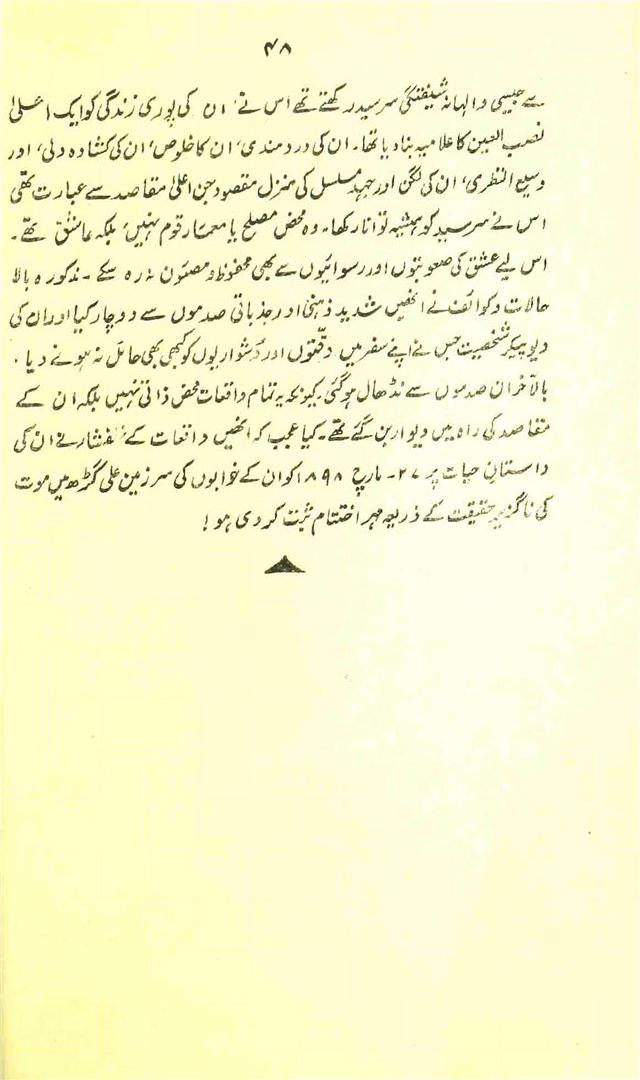 ۴۸
سے جیسی والہانہ شیفتگی سرسید رکھتے تھے اس نے ان کی پوری زندگی کو ایک اعلیٰ
نصب العین کا علامیہ بنا دیا تھا۔ ان کی دردمندی، ان کا خلوص، ان کی کشادہ دلی، اور
وسیع النظری، ان کی لگن اور جہدِ مسلسل کی منزل مقصود جن اعلیٰ مقاصد سے عبارت تھی
اس نے سرسید کو ہمیشہ توانا رکھا۔ وہ محض مصلح یا معمار قوم نہیں، بلکہ عاشق تھے۔
اس لیے عشق کی صعوبتوں اور رسوائیوں سے بھی محفوظ و مصئون نہ رہ سکے ۔ مذکورہ بالا
حالات و کوائف نے انھیں شدید ذہنی اور جذباتی صدموں سے دوچار کیا اور ان کی
دیوپیکر شخصیت جس نے اپنے سفر میں دقتوں اور دشواریوں کو کبھی بھی حائل نہ ہونے دیا۔
بالآخر ان صدموں سے نڈھال ہو گئی۔ کیونکہ یہ تمام واقعات محض ذاتی نہیں بلکہ ان کے
مقاصد کی راہ میں دیوار بن گئے تھے۔ کیا عجب کہ انھیں واقعات کے فشار نے ان کی
داستانِ حیات پر ۲۷۔ مارچ ۱۸۹۸ء کو ان کے خوابوں کی سرزمین علی گڑھ میں موت
کی ناگزیر حقیقت کے ذریعہ مہر اختتام ثبت کر دی ہو!